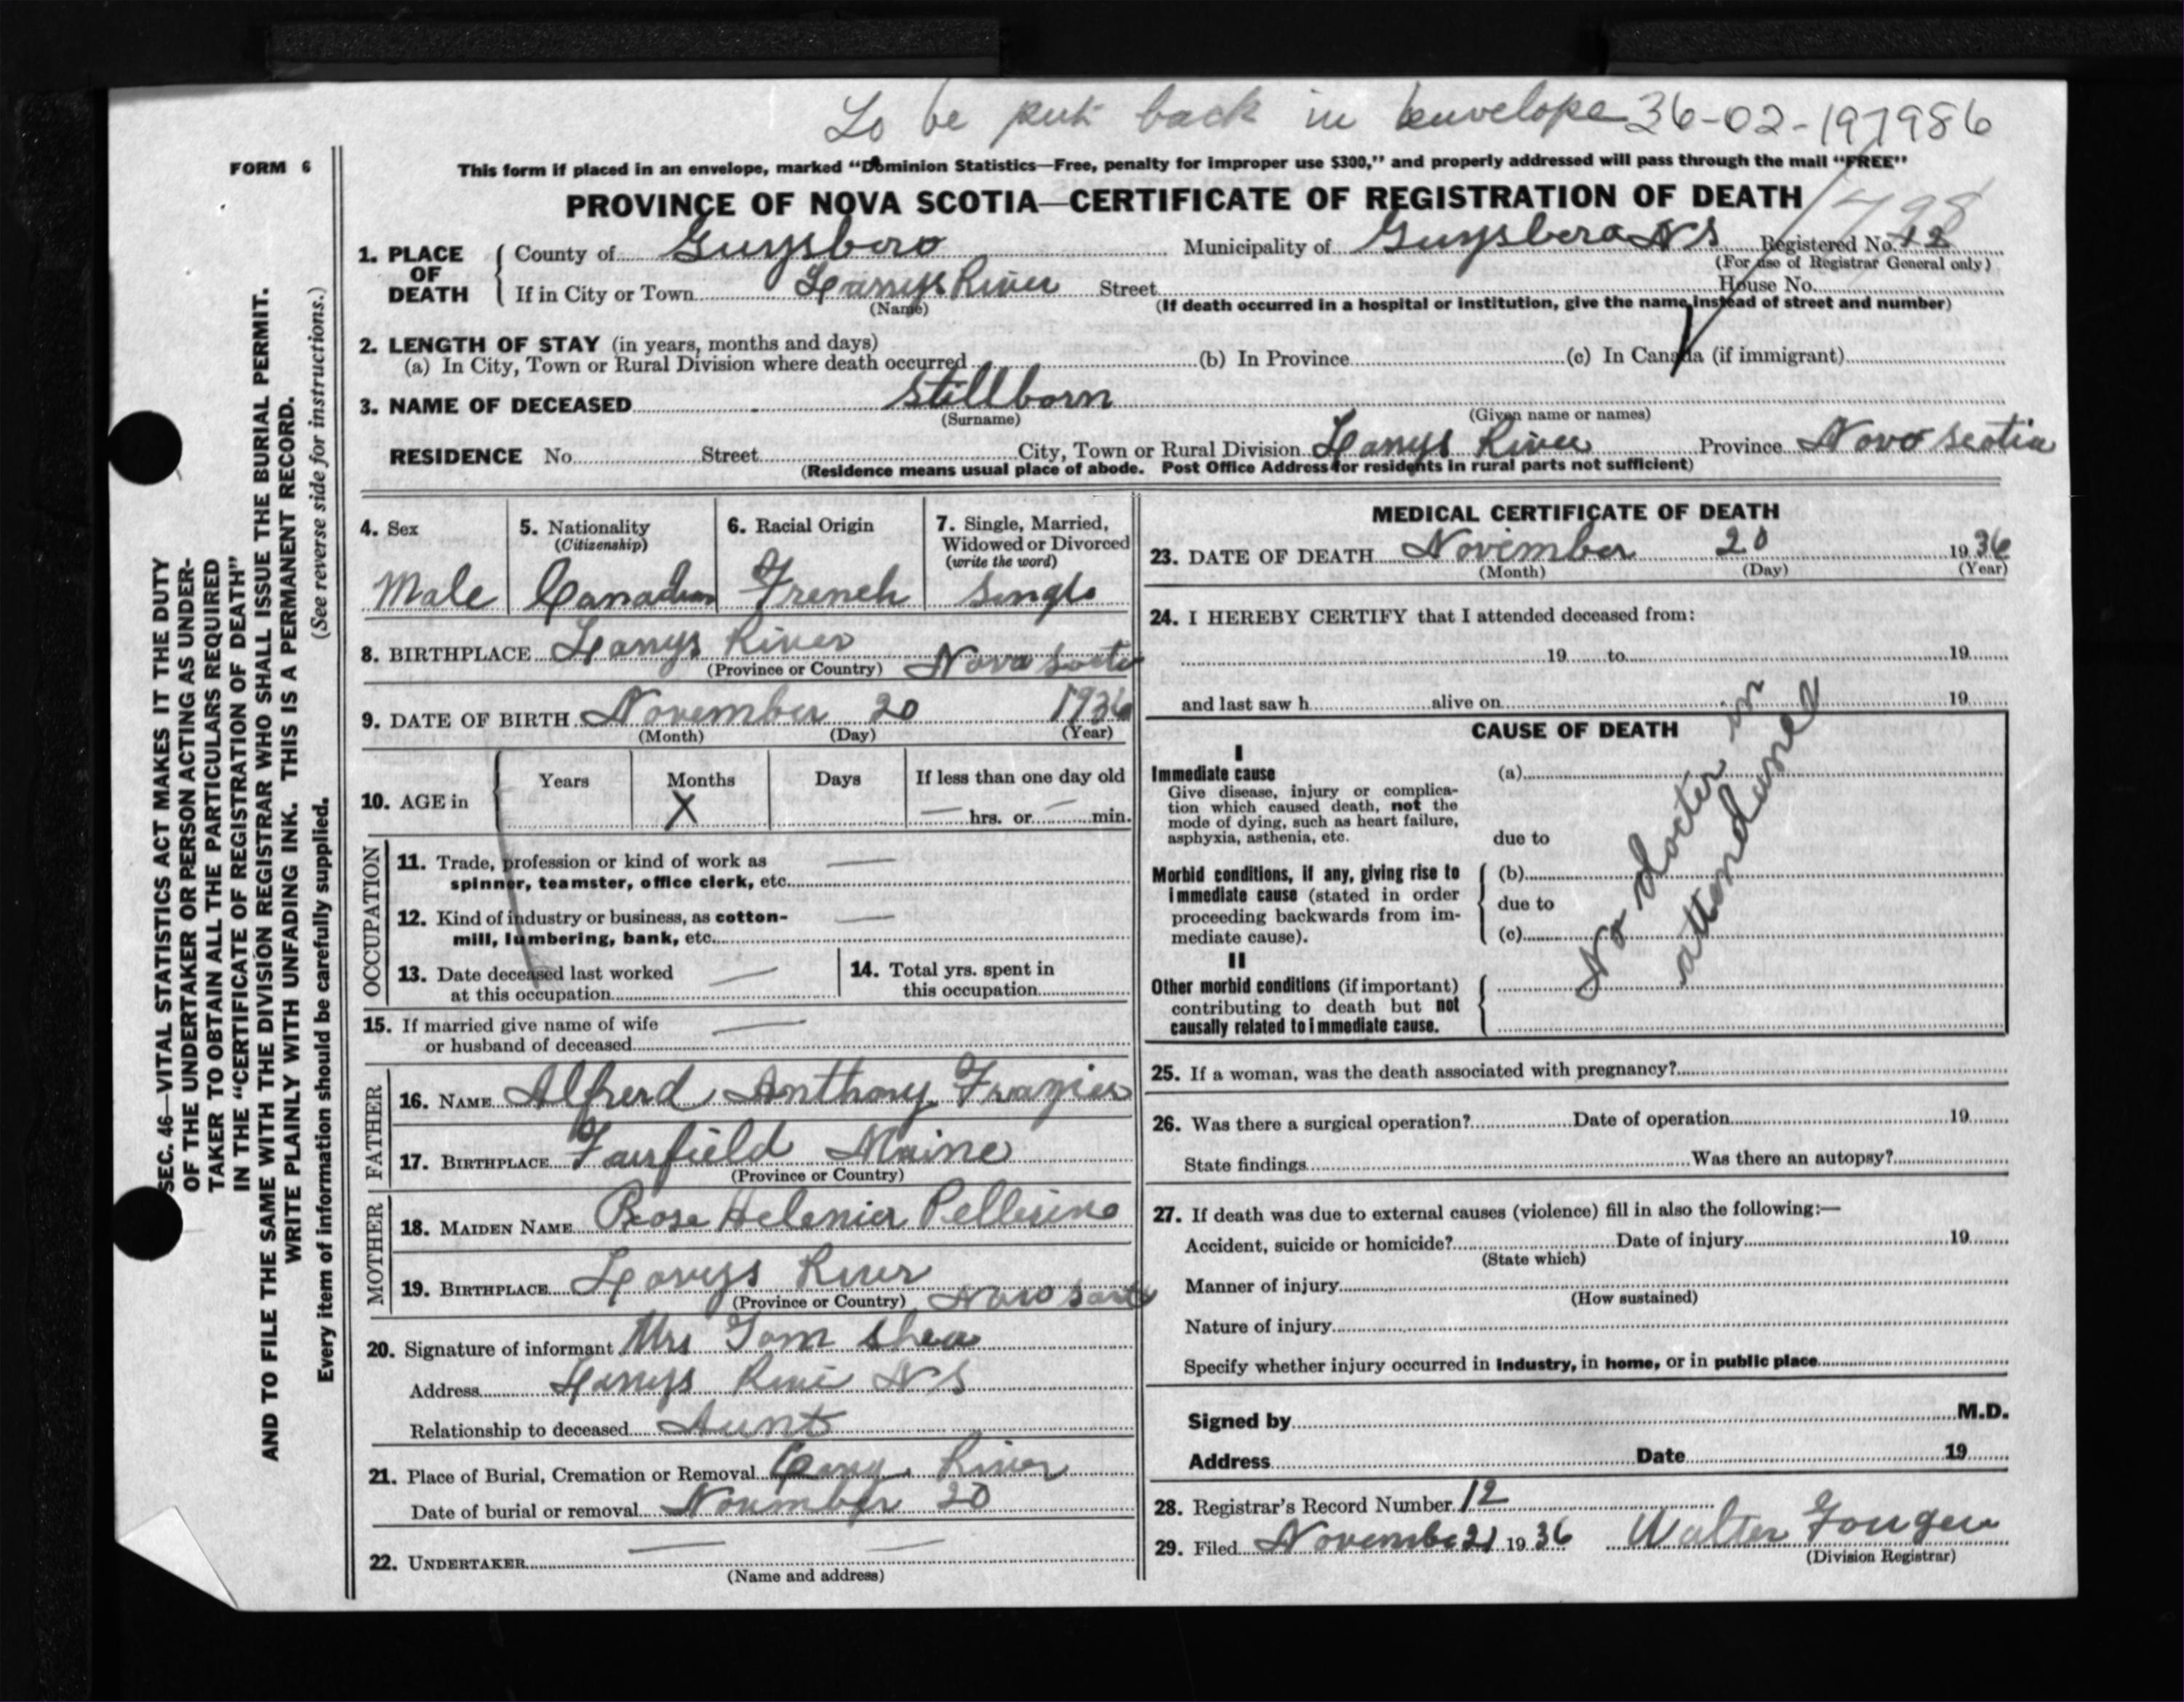 To be put back in envelope 36-02-197986
FORM 6
This form if placed in an envelope, marked "Dominion Statistics—Free, penalty for improper use $300," and properly addressed will pass through the mail "FREE"
PROVINCE OF NOVA SCOTIA—CERTIFICATE OF REGISTRATION OF DEATH
1. PLACE OF DEATH
County of Guysboro Municipality of Guysboro NS Registered No. 12
(For use of Registrar General only)
If in City or Town Larrys River Street House No.
(Name) (If death occurred in a hospital or institution, give the name instead of street and number)
2. LENGTH OF STAY (in years, months and days)
(a) In City, Town or Rural Division where death occurred (b) In Province (c) In Canada (if immigrant)
3. NAME OF DECEASED Stillborn
(Surname) (Given name or names)
RESIDENCE No. Street City, Town or Rural Division Larrys River Province Nova Scotia
(Residence means usual place of abode. Post Office Address for residents in rural parts not sufficient)
SEC. 46—VITAL STATISTICS ACT MAKES IT THE DUTY
OF THE UNDERTAKER OR PERSON ACTING AS UNDER-
TAKER TO OBTAIN ALL THE PARTICULARS REQUIRED
IN THE "CERTIFICATE OF REGISTRATION OF DEATH"
AND TO FILE THE SAME WITH THE DIVISION REGISTRAR WHO SHALL ISSUE THE BURIAL PERMIT.
WRITE PLAINLY WITH UNFADING INK. THIS IS A PERMANENT RECORD.
Every item of information should be carefully supplied. (See reverse side for instructions.)
4. Sex
Male
5. Nationality
(Citizenship)
Canadian
6. Racial Origin
French
7. Single, Married,
Widowed or Divorced
(write the word)
Single
8. BIRTHPLACE Larrys River
(Province or Country) Nova Scotia
9. DATE OF BIRTH November 20 1936
(Month) (Day) (Year)
10. AGE in
Years Months Days If less than one day old
X — hrs. or — min.
OCCUPATION
11. Trade, profession or kind of work as —
spinner, teamster, office clerk, etc.
12. Kind of industry or business, as cotton- —
mill, lumbering, bank, etc.
13. Date deceased last worked —
at this occupation
14. Total yrs. spent in
this occupation
15. If married give name of wife —
or husband of deceased
FATHER
16. NAME Alfred Anthony Frazier
17. BIRTHPLACE Fairfield Maine
(Province or Country)
MOTHER
18. MAIDEN NAME Rose
19. BIRTHPLACE Larrys River
(Province or Country) Nova Scotia
20. Signature of informant Mrs Tom Shea
Address Larrys River NS
Relationship to deceased Aunt
21. Place of Burial, Cremation or Removal Larrys River
Date of burial or removal November 20
22. UNDERTAKER — —
(Name and address)
MEDICAL CERTIFICATE OF DEATH
23. DATE OF DEATH November 20 1936
(Month) (Day) (Year)
24. I HEREBY CERTIFY that I attended deceased from:
19 to 19
and last saw h alive on 19
CAUSE OF DEATH
I
Immediate cause (a)
Give disease, injury or complica-
tion which caused death, not the
mode of dying, such as heart failure,
asphyxia, asthenia, etc. due to
Morbid conditions, if any, giving rise to (b)
immediate cause (stated in order due to
proceeding backwards from im-
mediate cause). (c)
No doctor in
attendance
II
Other morbid conditions (if important)
contributing to death but not
causally related to immediate cause.
25. If a woman, was the death associated with pregnancy?
26. Was there a surgical operation? Date of operation 19
State findings Was there an autopsy?
27. If death was due to external causes (violence) fill in also the following:—
Accident, suicide or homicide? Date of injury 19
(State which)
Manner of injury
(How sustained)
Nature of injury
Specify whether injury occurred in industry, in home, or in public place
Signed by M.D.
Address Date 19
28. Registrar's Record Number 12
29. Filed November 21 1936 Walter Fougere
(Division Registrar)